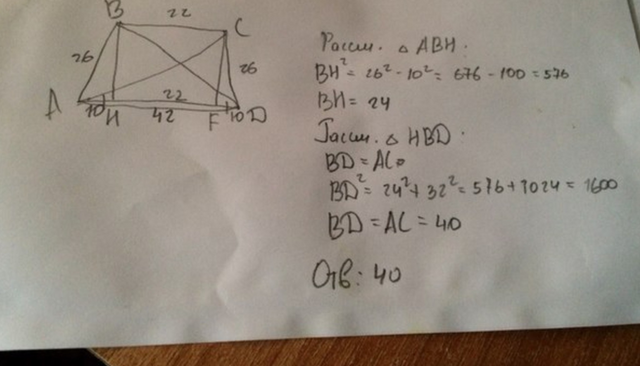 B
22
C
26
26
A
22
10
H
42
F
10
D
Рассм. △ ABH.
BH² = 26² - 10² = 676 - 100 = 576
BH = 24
Рассм. △ HBD.
BD = AC
BD² = 24² + 32² = 576 + 1024 = 1600
BD = AC = 40
Отв: 40